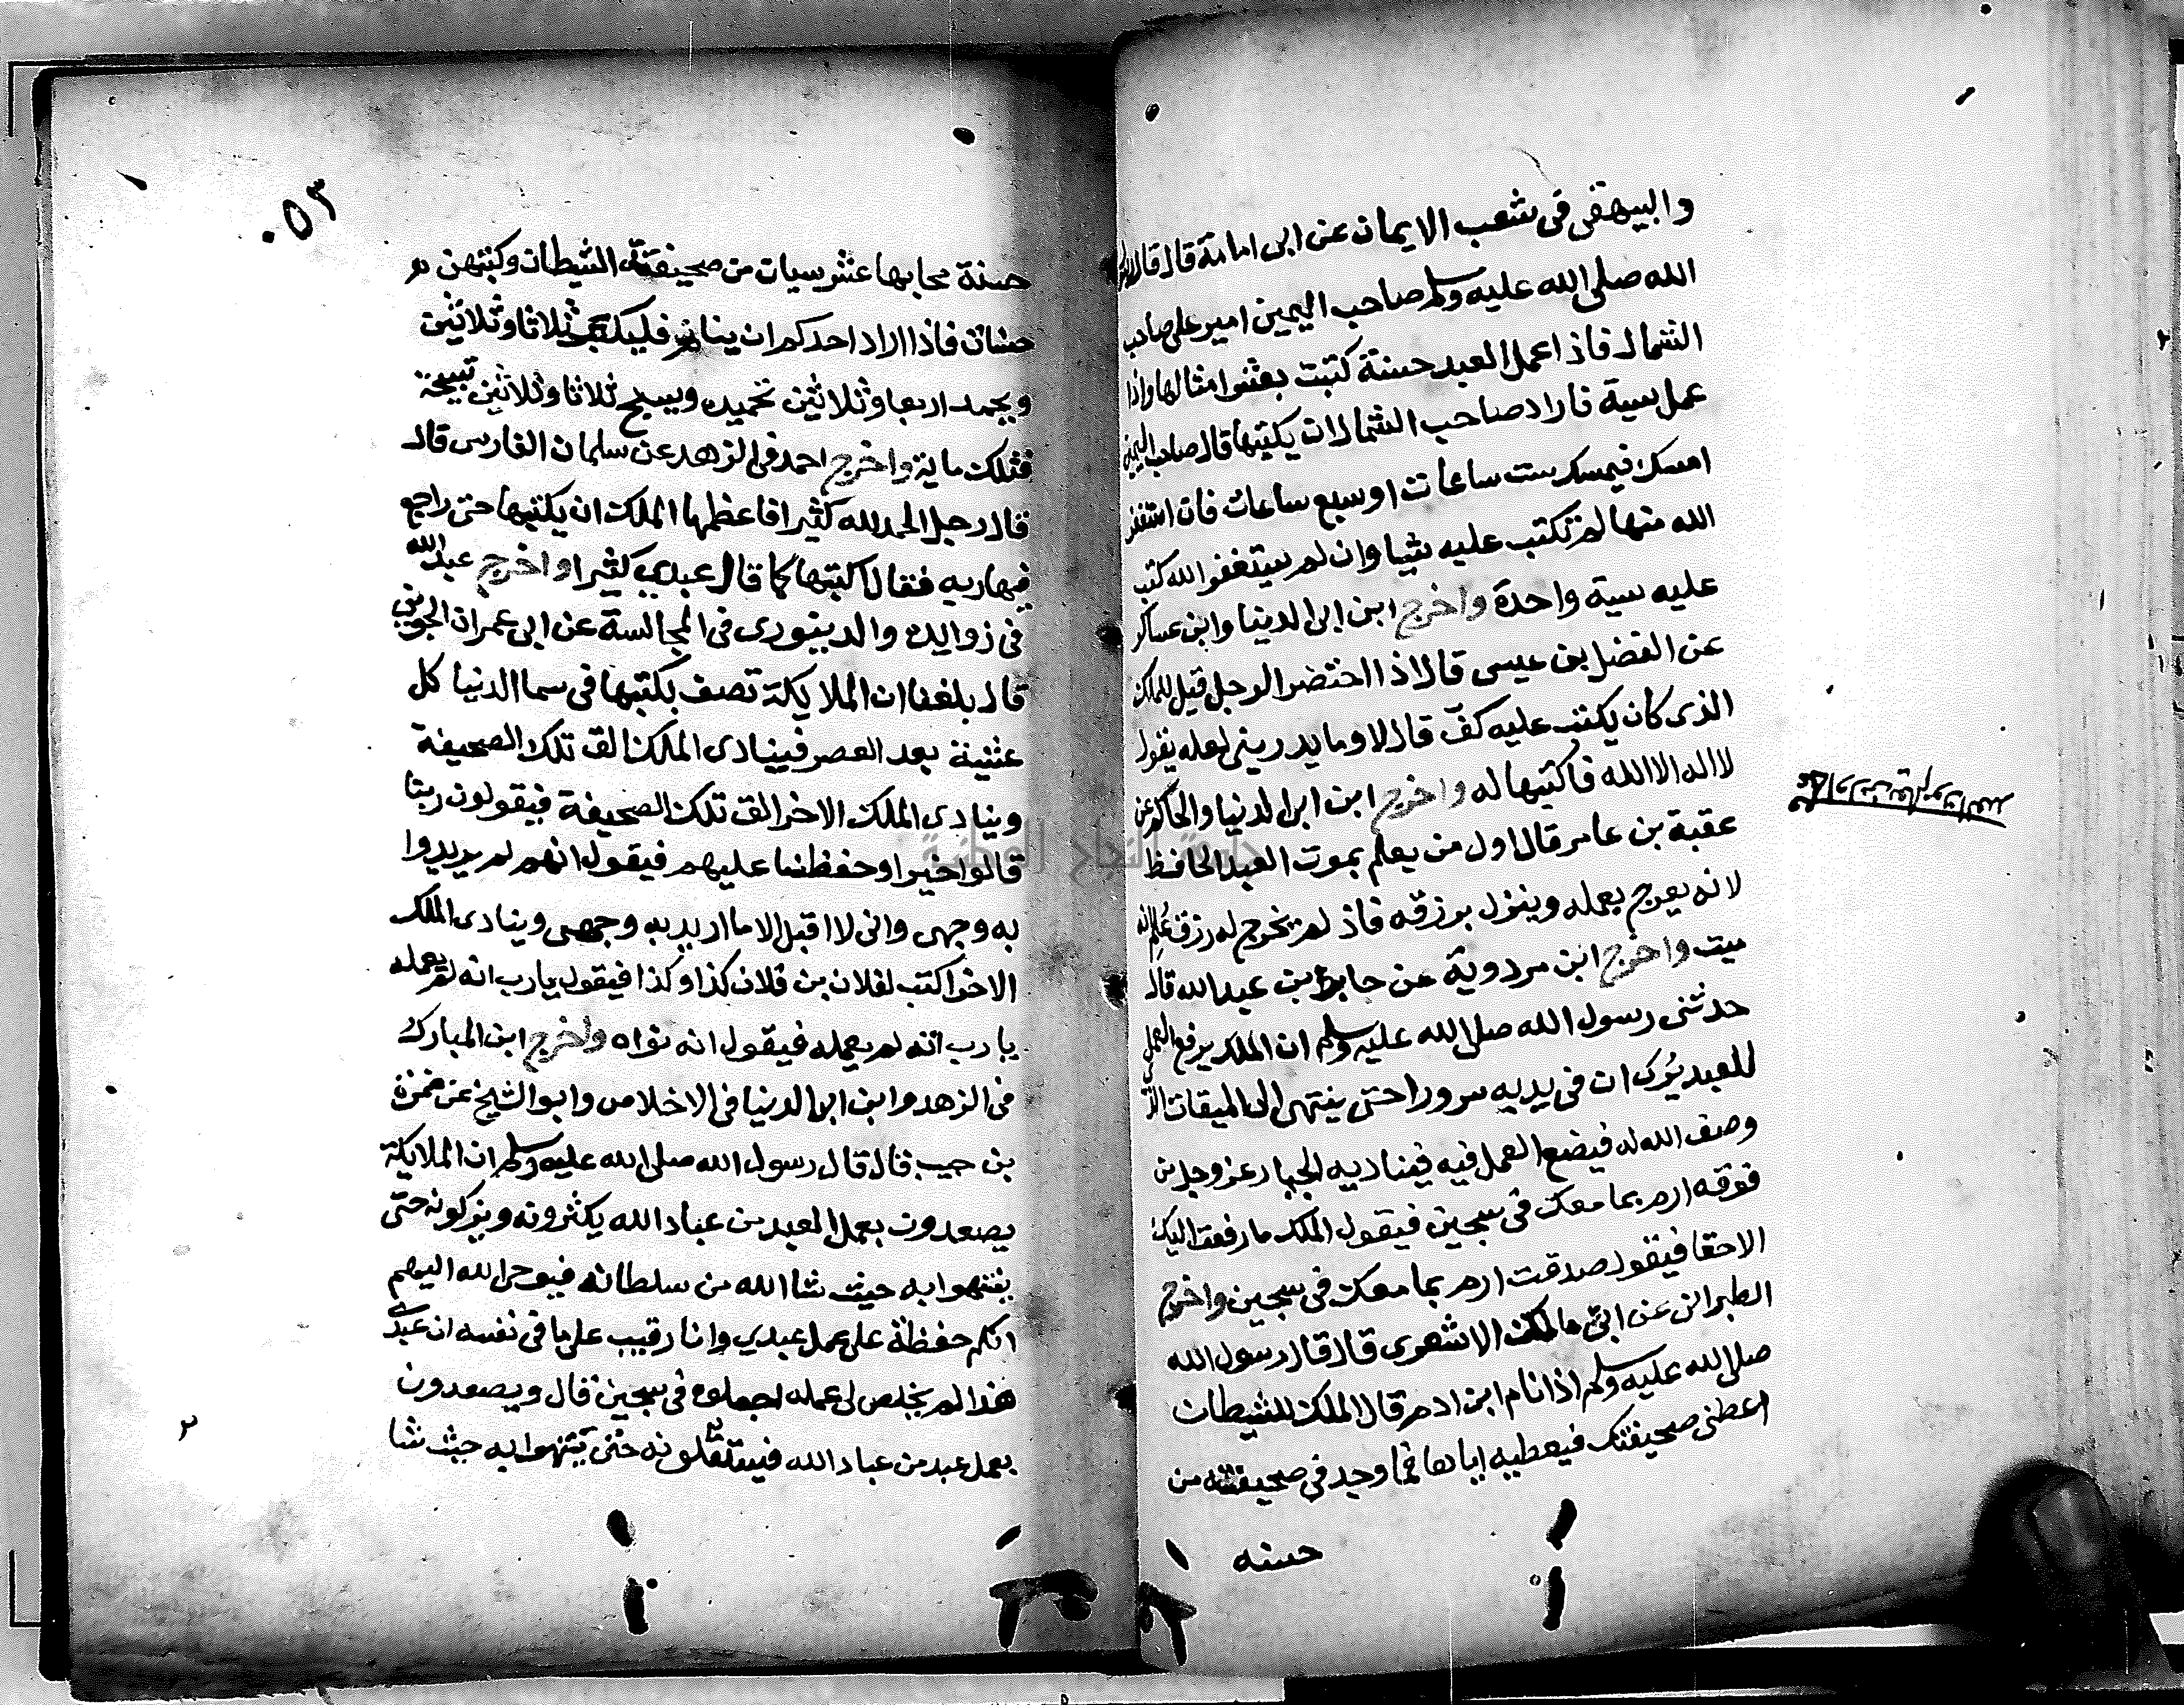 والبيهقى فى شعب الايمان عن ابى امامة قال قال رسول
الله صلى الله عليه وسلم صاحب اليمين امير على صاحب
الشمال فاذا عمل العبد حسنة كتبت بعشر امثالها واذا
عمل سية فاراد صاحب الشمال ان يكتبها قال صاحب اليمين
امسك فيمسك ست ساعات او سبع ساعات فان استغفر
الله منها لم تكتب عليه شيا وان لم يستغفر الله كتب
عليه سية واحدة واخرج ابن ابى الدنيا وابن عساكر
عن الفضل بن عيسى قال اذا احتضر الرجل قيل للملك
الذى كان يكتب عليه كف قال لا وما يدرينى لعله يقول
لا اله الا الله فاكتبها له واخرج ابن ابى الدنيا والحاكم عن
عقبة بن عامر قال اول من يعلم بموت العبد الحافظ
لانه يعرج بعمله وينزل برزقه فاذ لم يخرج له رزق علم انه
ميت واخرج ابن مردوية عن جابر بن عبد الله قال
حدثنى رسول الله صلى الله عليه وسلم ان الملك يرفع العمل
للعبد يرى ان فى يديه سرورا حتى ينتهى الى الميقات الذى
وصف الله له فيضع العمل فيه فيناديه الجبار عز وجل من
فوقه ارم بما معك فى سجين فيقول الملك ما رفعت اليك
الاحقا فيقول صدقت ارم بما معك فى سجين واخرج
الطبرانى عن ابى مالك الاشعرى قال قال رسول الله
صلى الله عليه وسلم اذا نام ابن ادم قال الملك للشيطان
اعطنى صحيفتك فيعطيه اياها فما وجد فى صحيفته من
حسنه
٥٣
حسنة محا بها عشر سيات من صحيفة الشيطان وكتبهن
حسنات فاذا اراد احدكم ان ينام فليكبر ثلاثا وثلاثين
ويحمد اربعا وثلاثين تحميده ويسبح ثلاثا وثلاثين تسبيحة
فتلك ماية واخرج احمد فى الزهد عن سلمان الفارسى قال
قال رجل الحمد لله كثيرا فاعظمها الملك ان يكتبها حتى راجع
فيها ربه فقال اكتبها كما قال عبدي كثيرا واخرج عبد الله
فى زوايده والدينورى فى المجالسة عن ابى عمران الجونى
قال بلغنا ان الملايكة تصف بكتبها فى سما الدنيا كل
عشية بعد العصر فينادى الملك الق تلك الصحيفة
وينادى الملك الاخر الق تلك الصحيفة فيقولون ربنا
قالوا خيرا وحفظنا عليهم فيقول انهم لم يريدوا
به وجهى وانى لا اقبل الا ما اريد به وجهى وينادى الملك
الاخر اكتب لفلان بن فلان كذا وكذا فيقول يارب انه لم يعمله
يا رب انه لم يعمله فيقول انه نواه واخرج ابن المبارك
فى الزهد وابن ابى الدنيا فى الاخلاص وابو الشيخ عن ضمرة
بن حبيب قال قال رسول الله صلى الله عليه وسلم ان الملايكة
يصعدون بعمل العبد من عباد الله يكثرونه ويزكونه حتى
ينتهوا به حيث شا الله من سلطانه فيوحى الله اليهم
انكم حفظة على عمل عبدي وانا رقيب على ما فى نفسه ان عبدى
هذا لم يخلص لى عمله اجعلوه فى سجين قال ويصعدون
بعمل عبد من عباد الله فيستقلونه حتى ينتهوا به حيث شا
جامعة النجاح الوطنية